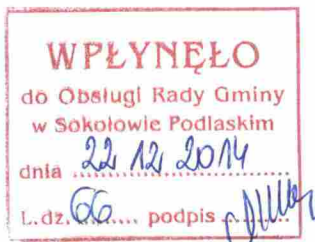 WPŁYNĘŁO
do Obsługi Rady Gminy
w Sokołowie Podlaskim
dnia 22 12 2014
L.dz. 66 podpis